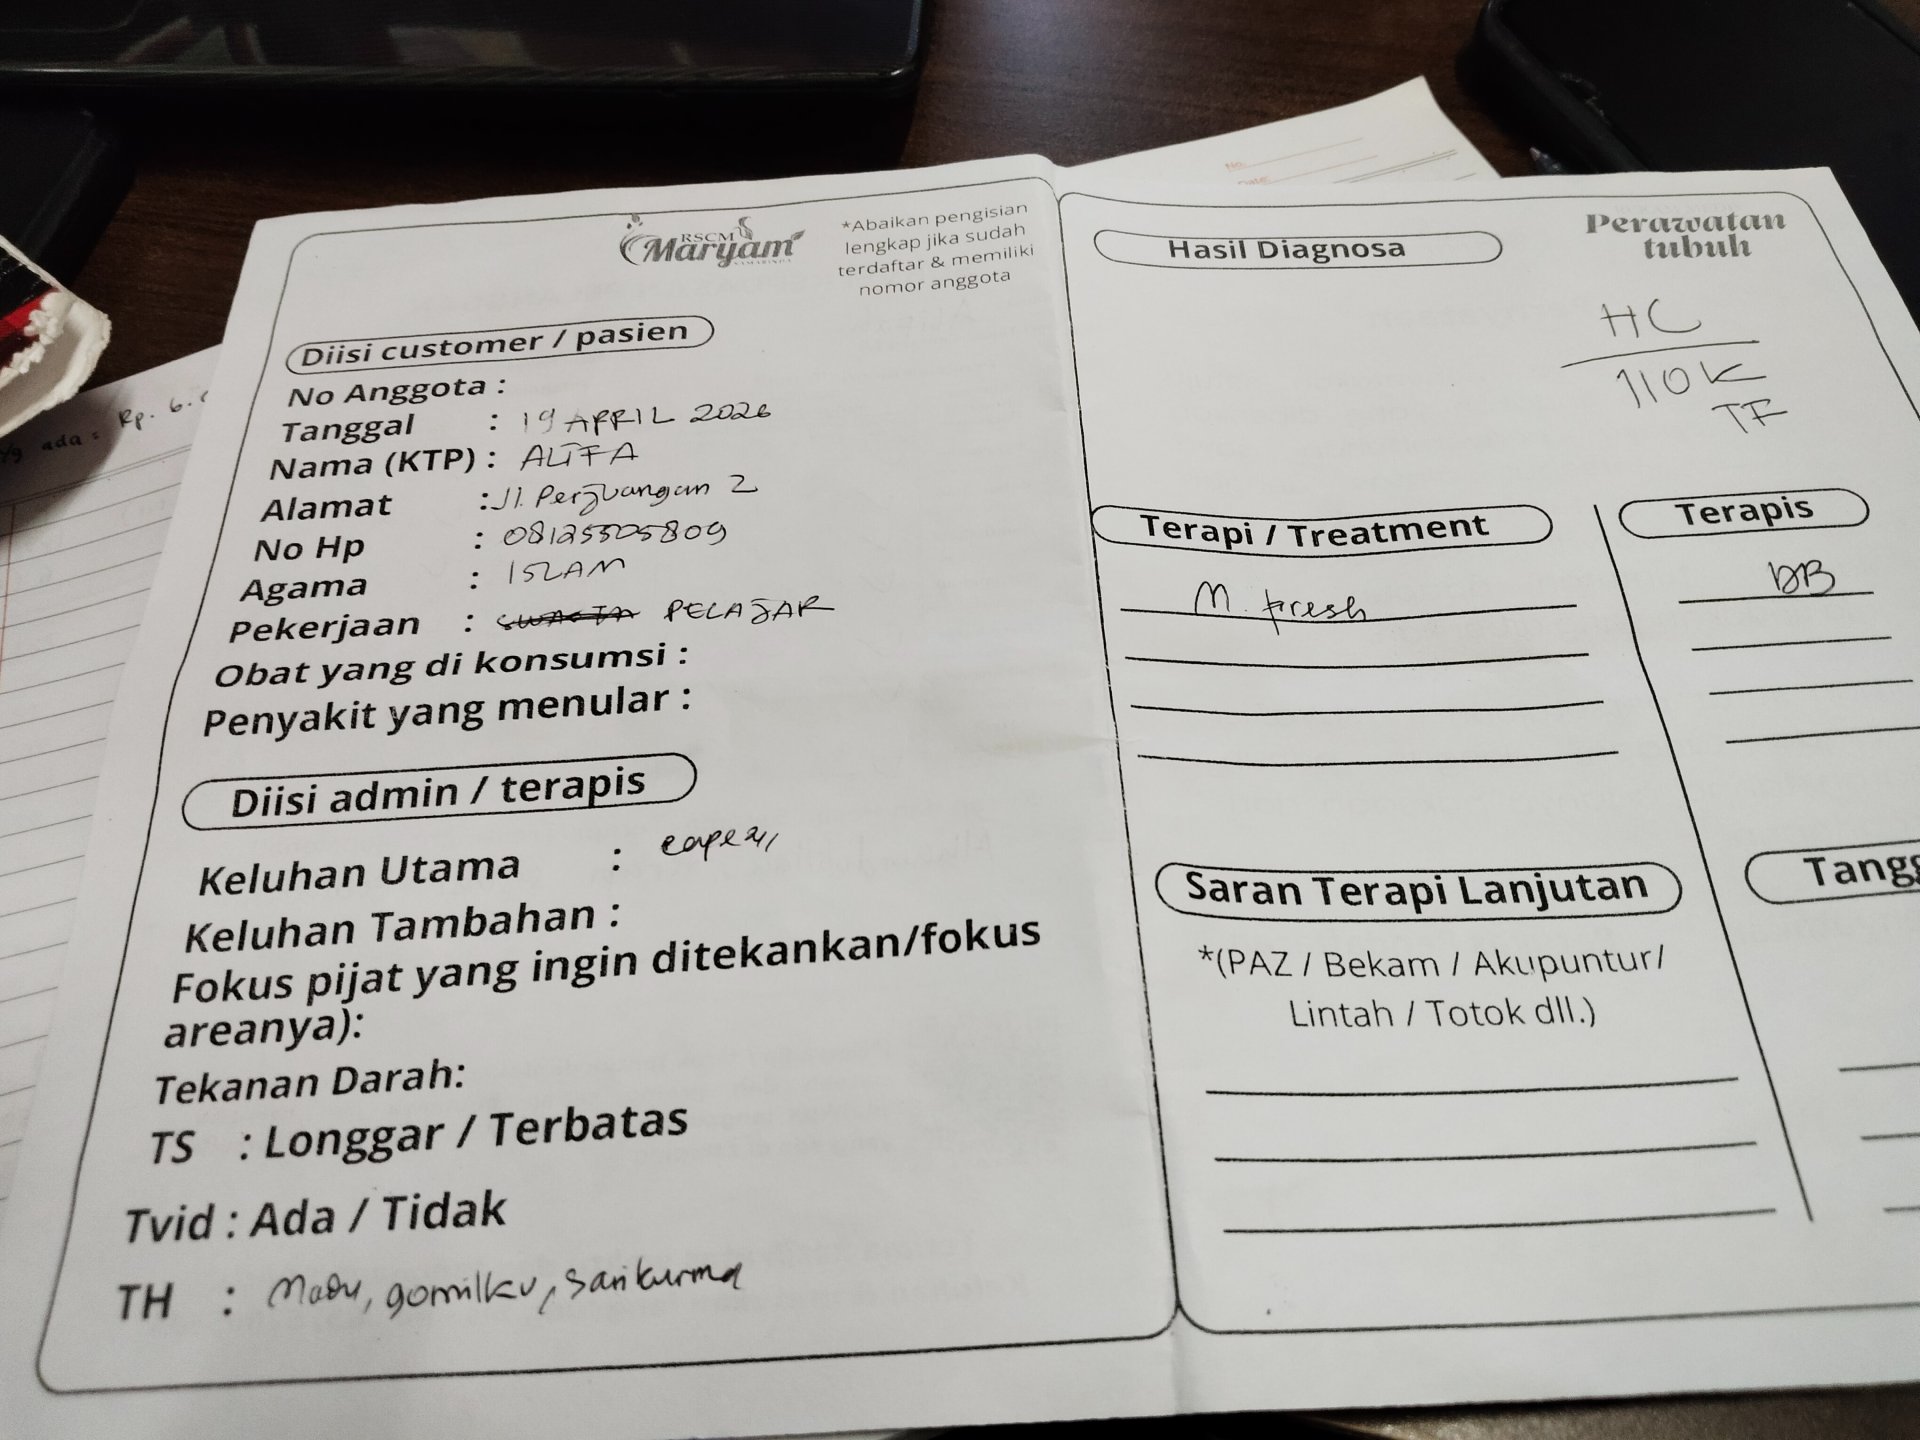 RSCM
Maryam
SAMARINDA
*Abaikan pengisian
lengkap jika sudah
terdaftar & memiliki
nomor anggota
Diisi customer / pasien
No Anggota :
Tanggal : 19 APRIL 2026
Nama (KTP) : ALIFA
Alamat : Jl. Perjuangan 2
No Hp : 08125505809
Agama : ISLAM
Pekerjaan : SWASTA PELAJAR
Obat yang di konsumsi :
Penyakit yang menular :
Diisi admin / terapis
Keluhan Utama :
Keluhan Tambahan :
Fokus pijat yang ingin ditekankan/fokus
areanya):
Tekanan Darah:
TS : Longgar / Terbatas
Tvid : Ada / Tidak
TH : Madu, gomilku, sarikurma
Perawatan
tubuh
Hasil Diagnosa
HC
110K
TF
Terapi / Treatment
M. fresh
Terapis
BB
Saran Terapi Lanjutan
*(PAZ / Bekam / Akupuntur/
Lintah / Totok dll.)
Tangg
No.
Date:
ada : Rp. 6.